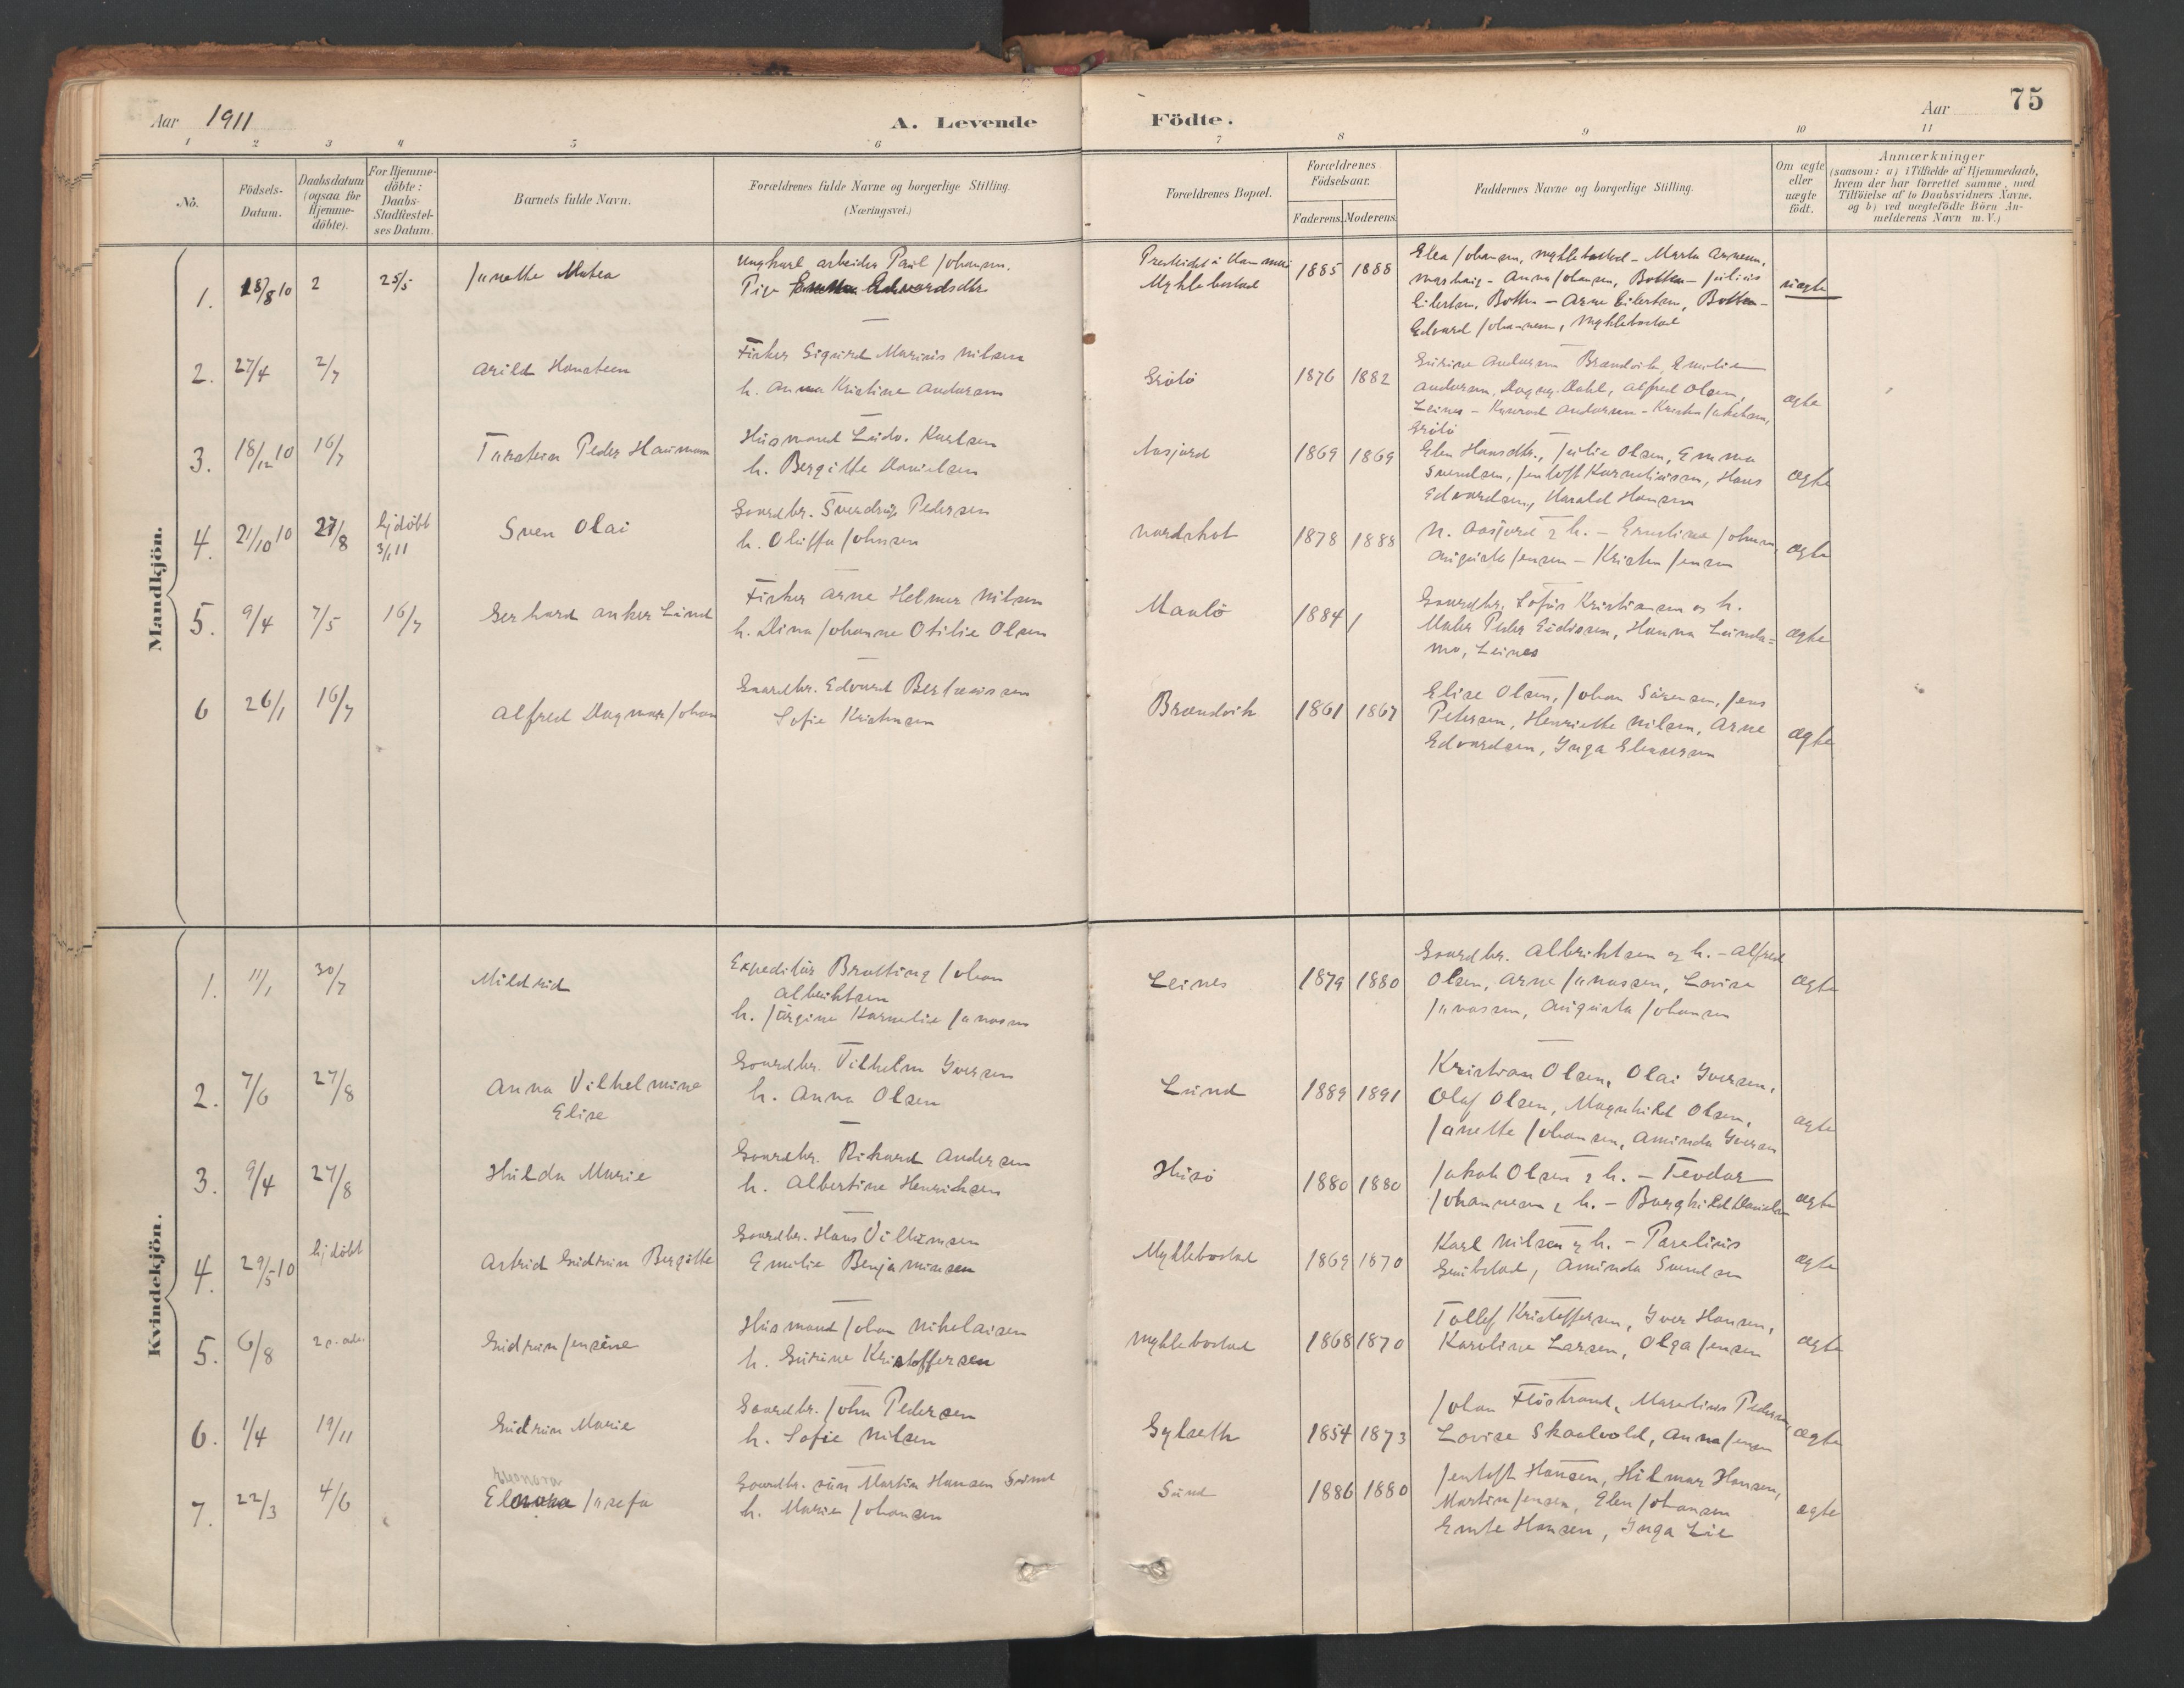 Aar 1911
A. Levende
Födte.
Aar
75
1 2 3 4 5 6 7 8 9 10 11
No.
Födsels-Datum.
Daabsdatum (ogsaa for Hjemmedöbte).
For Hjemmedöbte: Daabs-Stadfæstelses Datum.
Barnets fulde Navn.
Forældrenes fulde Navne og borgerlige Stilling.
(Næringsvei.)
Forældrenes Bopæl.
Forældrenes Födselsaar.
Faderens.
Moderens.
Faddernes Navne og borgerlige Stilling.
Om ægte eller uægte födt.
Anmærkninger
(saasom: a) i Tilfælde af Hjemmedaab,
hvem der har forrettet samme, med
Tilföielse af to Daabsvidners Navne.
og b) ved uægtefödte Börn Anmelderens Navn m. V.)
Mandkjön.
1. 18/8 10 2 25/5 Janette Matea
Ungkarl arbeider Paul Johansen.
Pige Emma Edvardsdtr
Myklebostad
1885 1888
Elea Johansen, Myklebostad - Marta Arnesen,
- Anna Johansen, Botten - Julius
Eilertsen, Botten - Arne Eilertsen, Botten -
Edvard Johannesen, Myklebostad
uægte
2. 27/4 2/7 Arild Haasteen
Fisker Sigurd Marius Nilsen
h. Anna Kristine Andersen
Grötö
1876 1882
Gurine Andersen Brandvik, Emilie
Andersen, Dagny Dahl, Alfred Olsen,
Leines - Konrad Andersen - Kristen Jakobsen,
Grötö
ægte
3. 18/12 10 16/7 Torstein Peder Hartman
Husmand Ludv. Karlsen
h. Bergitte Danielsen
Aasjord
1869 1869
Elen Hansdtr., Julie Olsen, Emma
Svendsen, Jentoft Korneliussen, Hans
Edvardsen, Harald Hansen
ægte
4. 21/10 10 27/8 hjdöbt 3/1 11 Sven Olai
Gaardbr. Sverdrup Pedersen
h. Oluffa Johnsen
Nordskot
1878 1888
N. Aasjord & h. - Ernstine Johnsen,
Augusta Jensen - Kristen Jensen
ægte
5. 9/4 7/5 16/7 Gerhard Anker Lund
Fisker Arne Helmer Nilsen
h. Dina Johanne Otilie Olsen
Maalö
1884 /
Gaardbr. Lofus Kristiansen og h.
Maler Peder Eidissen, Hanna Lunda=
mo, Leines
ægte
6 26/1 16/7 Alfred Dagmar Johan
Gaardbr. Edvard Berteussen
Sofie Kristensen
Brandvik
1861 1867
Elise Olsen, Johan Sörensen, Jens
Petersen, Henriette Nilsen, Arne
Edvardsen, Inga Eleasen
ægte
Kvindekjön.
1. 11/1 30/7 Mildrid
Expeditör Bratting Johan
Albrihtsen
h. Jörgine Kornelie Jonassen
Leines
1879 1880
Gaardbr. Albrihtsen og h. - Alfred
Olsen, Arne Jonassen, Lovise
Jonassen, Augusta Johansen
ægte
2. 7/6 27/8 Anna Vilhelmine
Elise
Gaardbr. Vilhelm Iversen
h. Anna Olsen
Lund
1889 1891
Kristian Olsen, Olai Iversen,
Olaf Olsen, Magnhild Olsen,
Janette Johansen, Aminda Iversen
ægte
3. 9/4 27/8 Hulda Marie
Gaardbr. Rikard Andersen
h. Albertine Henriksen
Husö
1880 1880
Jakob Olsen & h. - Teodor
Johannesen & h. - Borghild Danielsen
ægte
4. 29/5-10 hjdöbt Astrid Gudrun Bergitte
Gaardbr. Hans Villumsen
Emilie Benjaminsen
Myklebostad
1869 1870
Karl Nilsen & h. - Parelius
Grubstad, Aminda Svendsen
ægte
5. 6/8 Gudrun Jensine
Husmand Johan Nikolaisen
h. Gurine Kristoffersen
Myklebostad
1868 1870
Tollef Kristoffersen, Iver Hansen,
Karoline Larsen, Olga Jensen
ægte
6. 1/4 19/11 Gudrun Marie
Gaardbr. John Pedersen
h. Sofie Nilsen
Gylseth
1854 1873
Johan Flöstrand, Marelius Pedersen,
Lovise Skaalvold, Anna Jensen
ægte
7. 22/3 4/6 Eleonora
Elonora Josefa
Gaardbr. sön Martin Hansen Sund
h. Marie Johansen
Sund
1886 1880
Jentoft Hansen, Hilmar Hansen,
Martin Jensen, Elen Johansen
Emte Hansen, Inga Lie
ægte